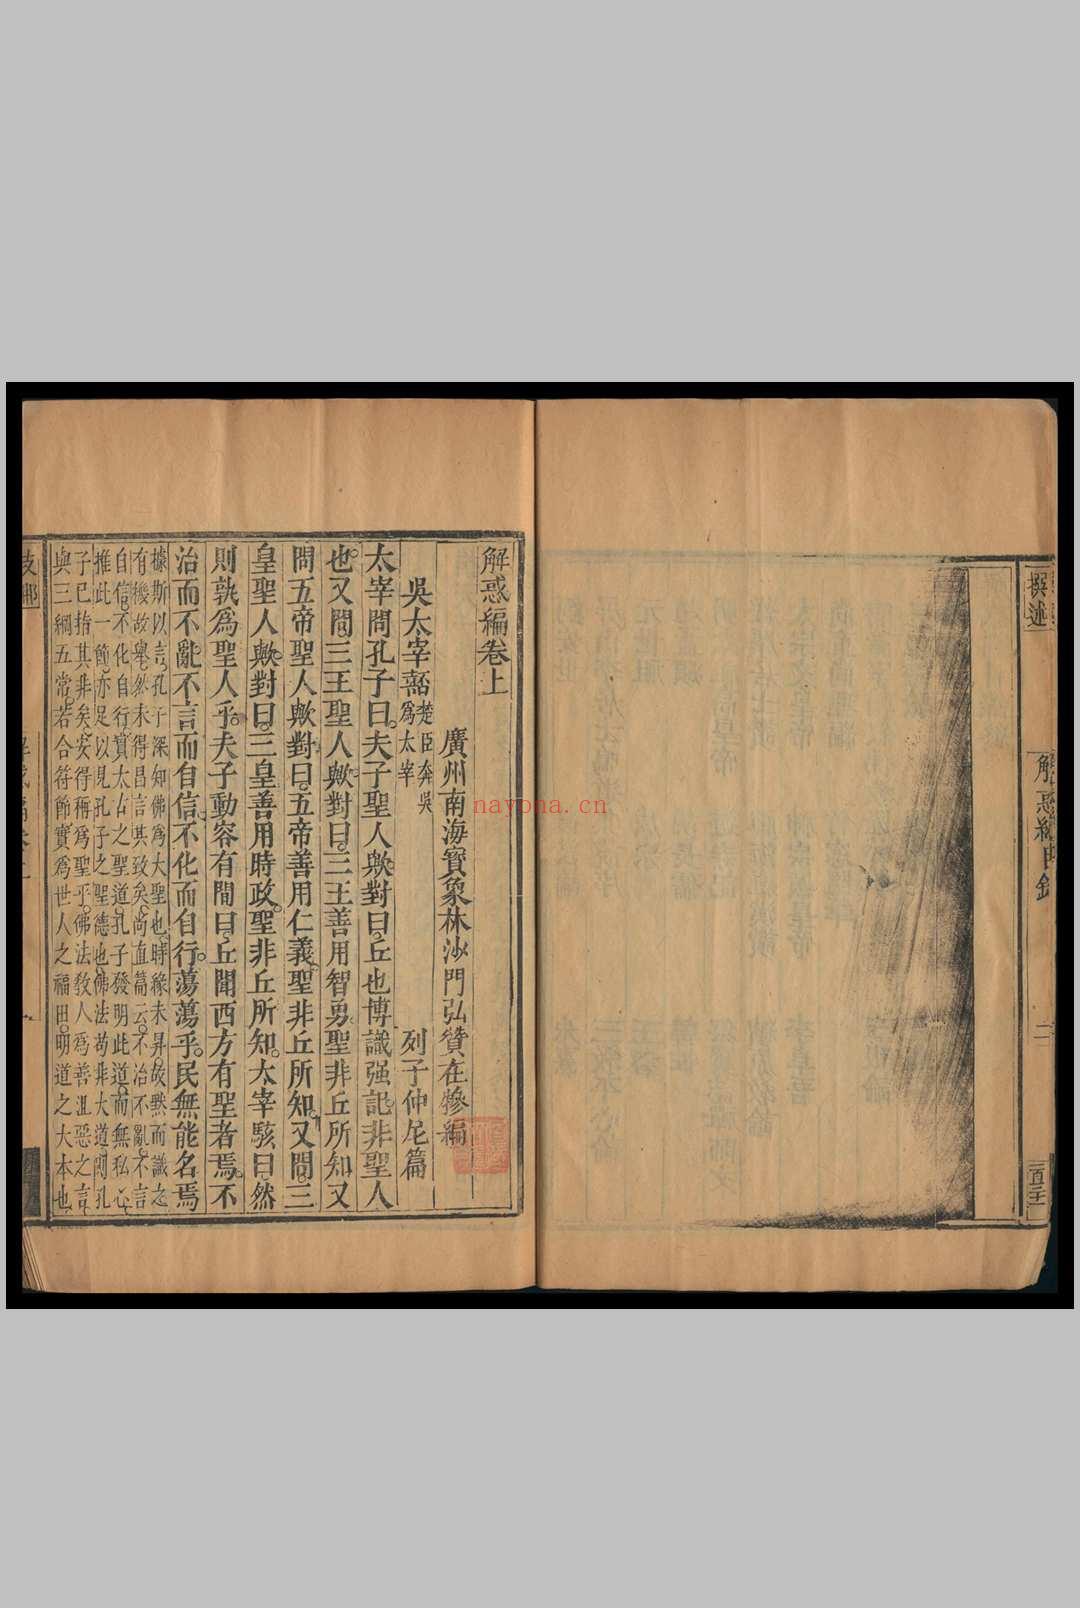 撰述
解惑編目錄
二
解惑編卷上
廣州南海寶象林沙門弘贊在犙編
吳太宰嚭楚臣奔吳爲太宰 列子仲尼篇
太宰問孔子曰夫子聖人歟對曰丘也博識强記非聖人
也又問三王聖人歟對曰三王善用智勇聖非丘所知又
問五帝聖人歟對曰五帝善用仁義聖非丘所知又問三
皇聖人歟對曰三皇善用時政聖非丘所知太宰駭曰然
則孰爲聖人乎夫子動容有間曰丘聞西方有聖者焉不
治而不亂不言而自信不化而自行蕩蕩乎民無能名焉
據斯以言孔子深知佛爲大聖也時緣未昇故默而識之
有機故舉然未得昌言其致矣尚直篇云不治不亂不言
自信不化自行實太古之聖道孔子發明此道而無私心
推此一節亦足以見孔子之聖德也佛法苟非大道則孔
子已指其非矣安得稱爲聖乎佛法教人爲善沮惡之言
與三綱五常若合符節實爲世人之福田明道之大本也
nayona.cn